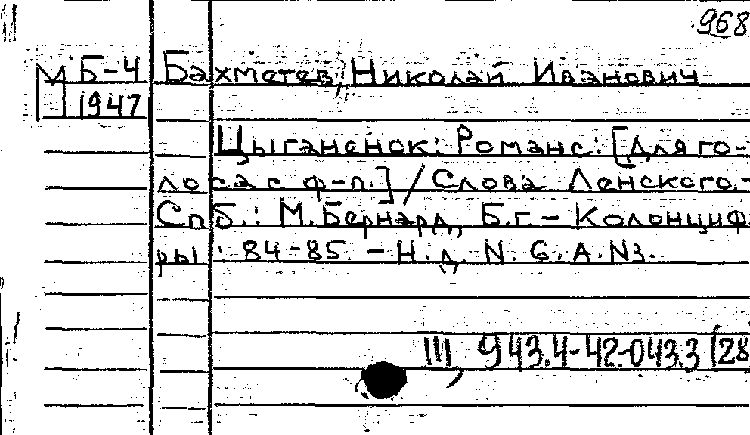 968
М Б-4 Бахметев, Николай Иванович
1947
Цыганенок: Романс: [Для го-
лоса с ф-п.] / Слова Ленского.-
Спб.: М. Бернард, Б.г. - Колонциф-
ры: 84-85. - Н.д. N. G. A. N3.
III, 943.4-42-043.3 (28